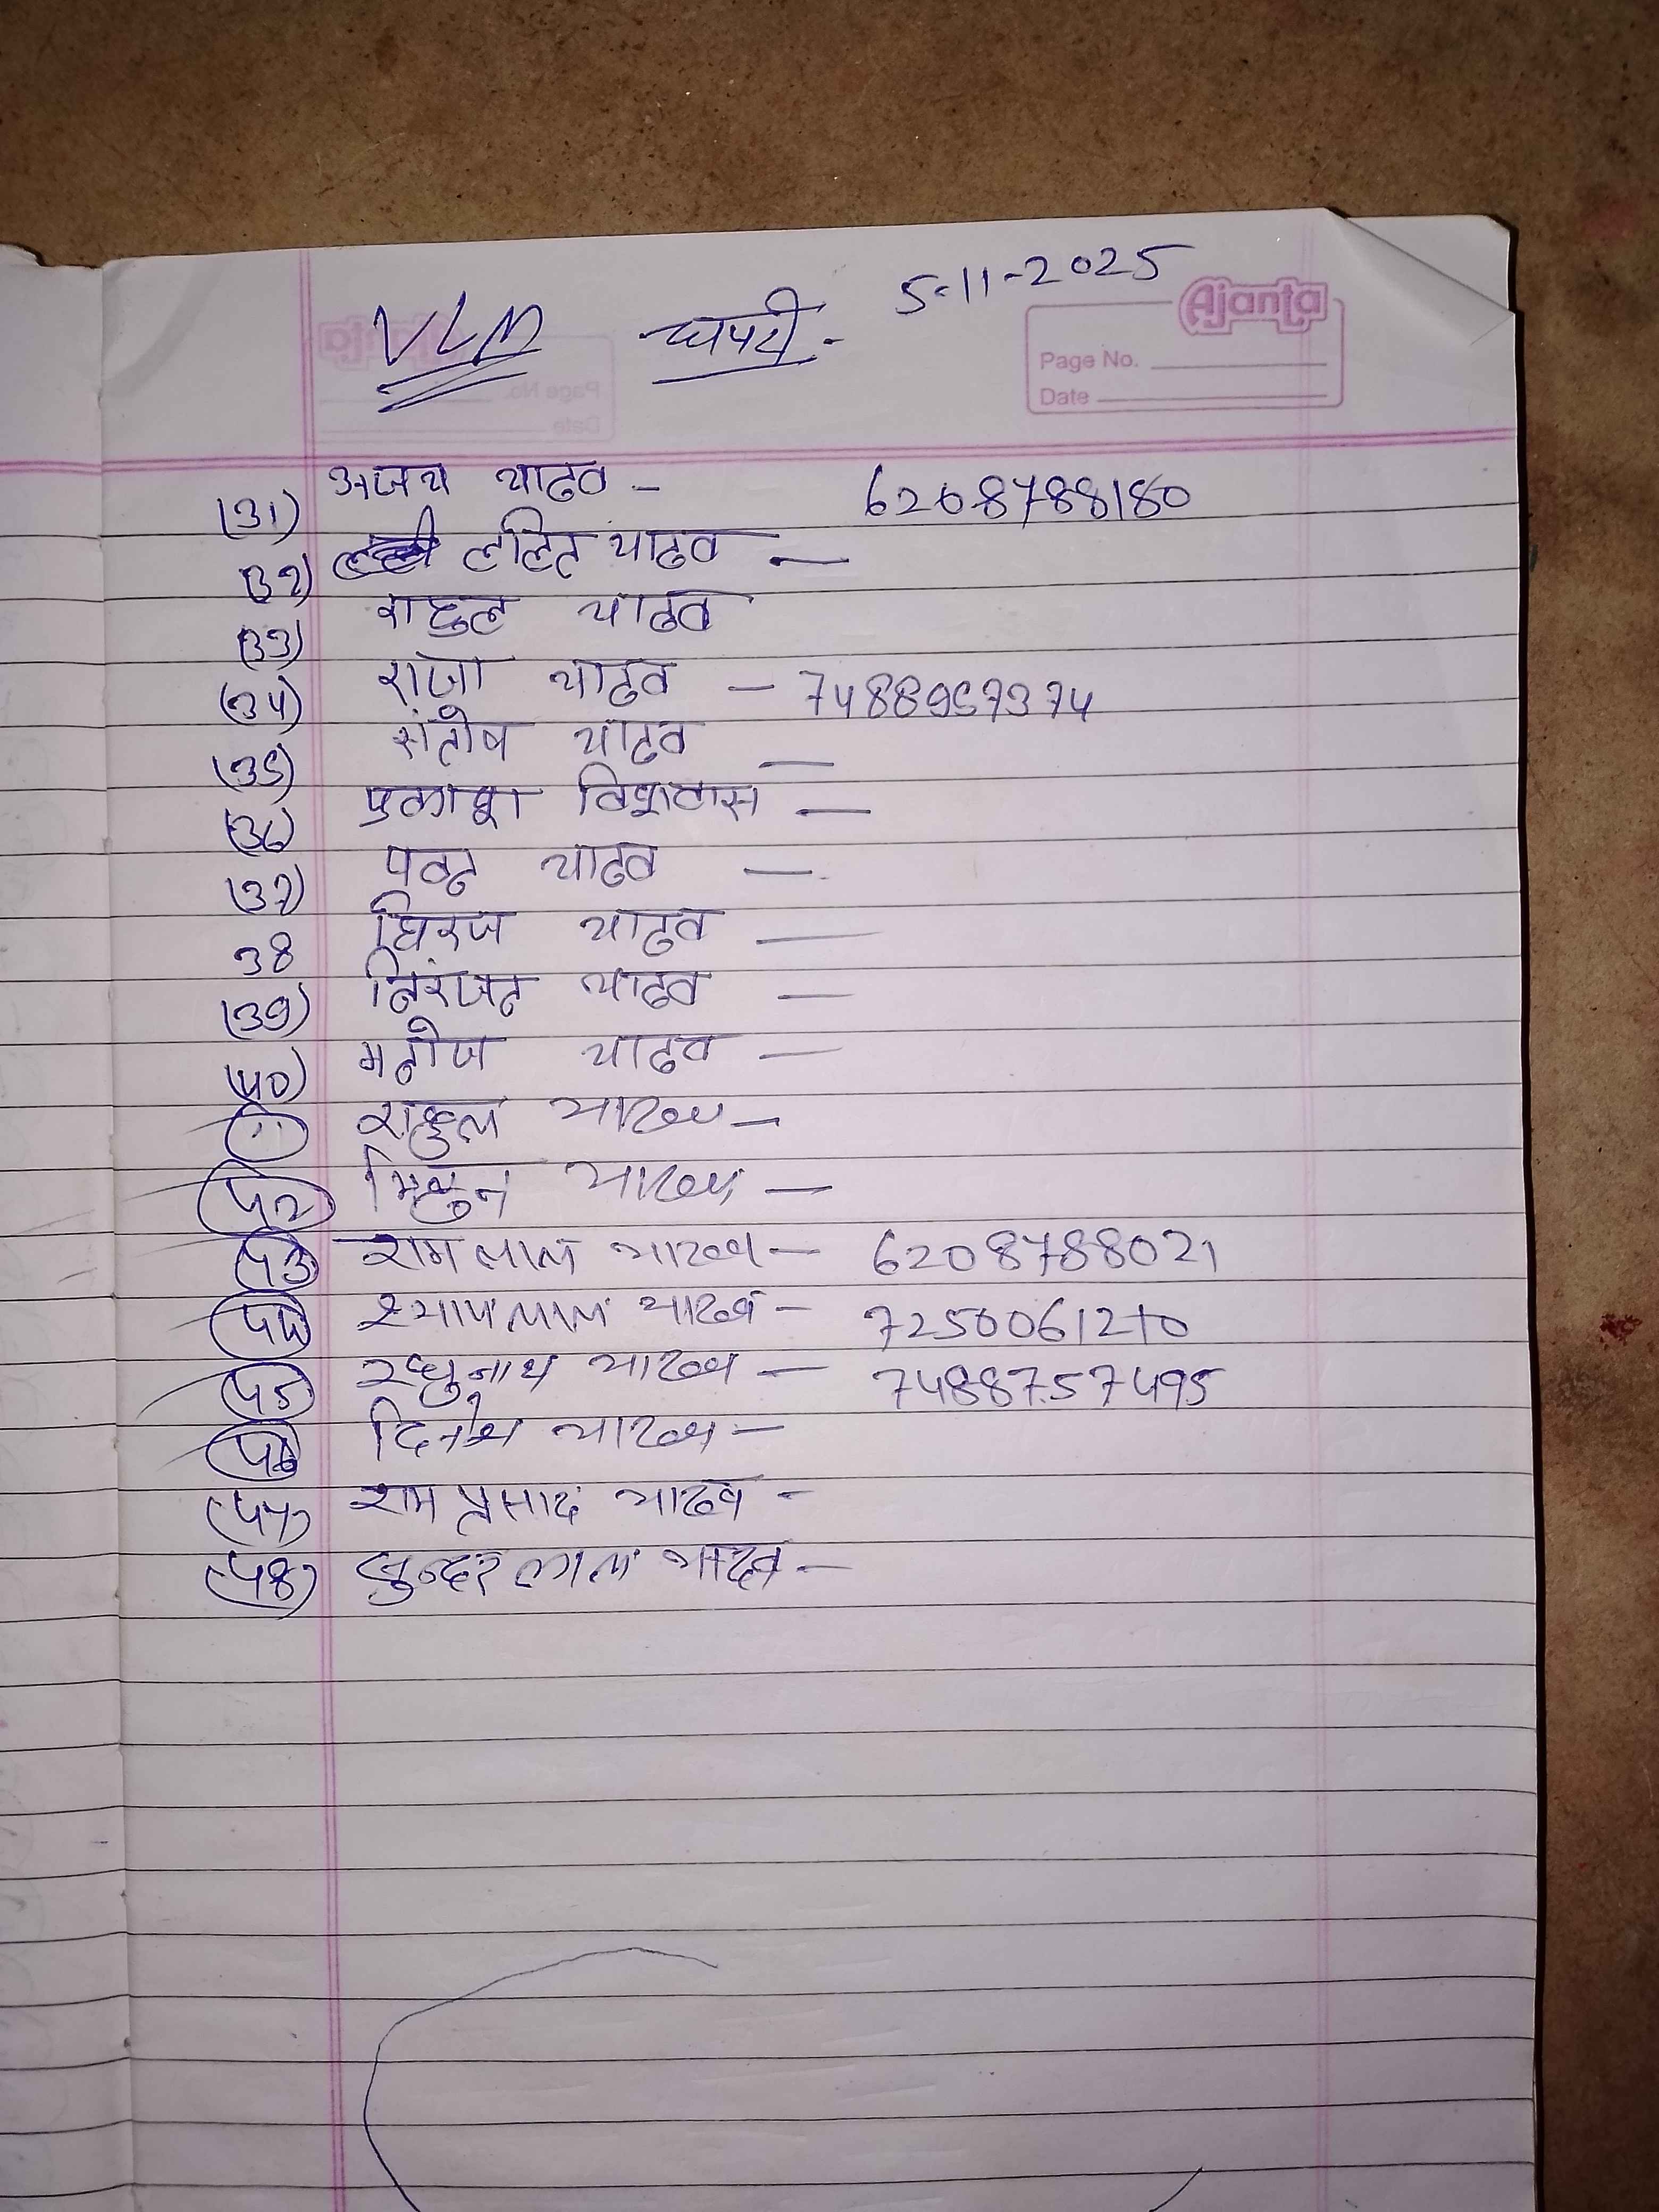 5-11-2025
Ajanta
VLM चपटी -
Page No.
Date
(31) अजय यादव - 6208788180
(32) ललित यादव —
(33) राहुल यादव
(34) राजा यादव —
(35) संतोष यादव —
(36) प्रकाश विश्वास —
(37) पवन यादव —
38 धिरज यादव —
(39) निरंजन यादव —
(40) मनोज यादव —
राहुल यादव —
42 मिथुन यादव —
43 राम लाल यादव — 6208788021
44 श्याम लाल यादव —
45 रघुनाथ यादव — 7488757495
46 दिनेश यादव —
(47) राम प्रसाद यादव -
(48) सुन्दर लाल यादव —